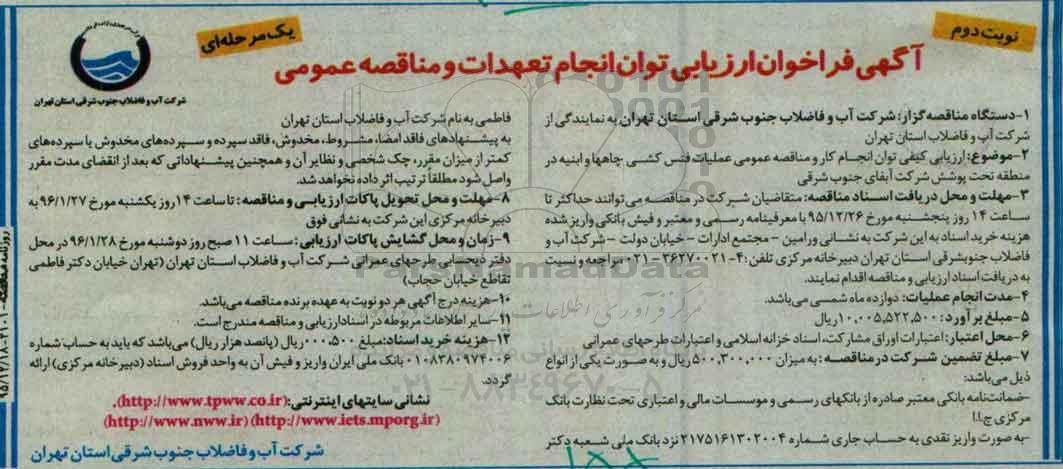 نوبت دوم
یک مرحله‌ای
آگهی فراخوان ارزیابی توان انجام تعهدات و مناقصه عمومی
شرکت آب و فاضلاب جنوب شرقی استان تهران
۱-دستگاه مناقصه گزار: شرکت آب و فاضلاب جنوب شرقی استان تهران به نمایندگی از
شرکت آب و فاضلاب استان تهران
۲-موضوع: ارزیابی کیفی توان انجام کار و مناقصه عمومی عملیات فنس کشی چاهها و ابنیه در
منطقه تحت پوشش شرکت آبفای جنوب شرقی
۳-مهلت و محل دریافت اسناد مناقصه: متقاضیان شرکت در مناقصه می‌توانند حداکثر تا
ساعت ۱۴ روز پنجشنبه مورخ ۹۵/۱۲/۲۶ با معرفینامه رسمی و معتبر و فیش بانکی واریز شده
هزینه خرید اسناد به این شرکت به نشانی ورامین - مجتمع ادارات - خیابان دولت - شرکت آب و
فاضلاب جنوبشرقی استان تهران دبیرخانه مرکزی تلفن: ۴-۳۶۲۷۰۰۲۱-۰۲۱ مراجعه و نسبت
به دریافت اسناد ارزیابی و مناقصه اقدام نمایند.
۴-مدت انجام عملیات: دوازده ماه شمسی می‌باشد.
۵-مبلغ برآورد: ۱۰,۰۰۵,۵۲۲,۵۰۰ ریال
۶-محل اعتبار: اعتبارات اوراق مشارکت، اسناد خزانه اسلامی و اعتبارات طرحهای عمرانی
۷-مبلغ تضمین شرکت در مناقصه: به میزان ۵۰۰,۳۰۰,۰۰۰ ریال و به صورت یکی از انواع
ذیل می‌باشد:
-ضمانت‌نامه بانکی معتبر صادره از بانکهای رسمی و موسسات مالی و اعتباری تحت نظارت بانک
مرکزی ج.ا.ا
-به صورت واریز نقدی به حساب جاری شماره ۲۱۷۵۱۶۱۳۰۲۰۰۴ نزد بانک ملی شعبه دکتر
فاطمی به نام شرکت آب و فاضلاب استان تهران
به پیشنهادهای فاقد امضا، مشروط، مخدوش، فاقد سپرده و سپرده‌های مخدوش یا سپرده‌های
کمتر از میزان مقرر، چک شخصی و نظایر آن و همچنین پیشنهاداتی که بعد از انقضای مدت مقرر
واصل شود مطلقاً ترتیب اثر داده نخواهد شد.
۸-مهلت و محل تحویل پاکات ارزیابی و مناقصه: تا ساعت ۱۴ روز یکشنبه مورخ ۹۶/۱/۲۷ به
دبیرخانه مرکزی این شرکت به نشانی فوق
۹-زمان و محل گشایش پاکات ارزیابی: ساعت ۱۱ صبح روز دوشنبه مورخ ۹۶/۱/۲۸ در محل
دفتر ذیحسابی طرحهای عمرانی شرکت آب و فاضلاب استان تهران (تهران خیابان دکتر فاطمی
تقاطع خیابان حجاب)
۱۰-هزینه درج آگهی هر دو نوبت به عهده برنده مناقصه می‌باشد.
۱۱-سایر اطلاعات مربوطه در اسناد ارزیابی و مناقصه مندرج است.
۱۲-هزینه خرید اسناد: مبلغ ۵۰۰,۰۰۰ ریال (پانصد هزار ریال) می‌باشد که باید به حساب شماره
۰۱۰۸۳۸۰۹۷۴۰۰۶ بانک ملی ایران واریز و فیش آن به واحد فروش اسناد (دبیرخانه مرکزی) ارائه
گردد.
نشانی سایتهای اینترنتی: (http://www.tpww.co.ir).
(http://www.nww.ir) (http://www.iets.mporg.ir)
شرکت آب و فاضلاب جنوب شرقی استان تهران
ParsNamadData
۰۲۱-۸۸۳۴۹۶۷۰-۵